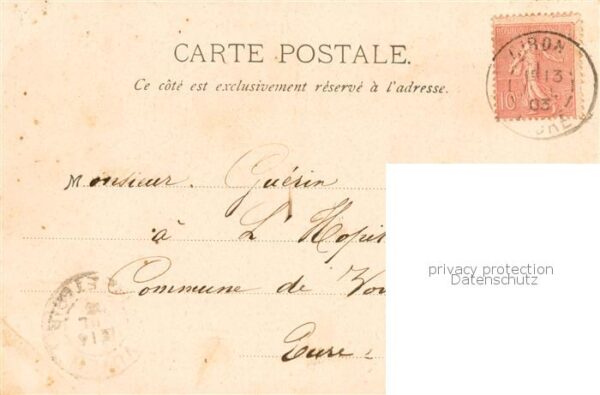 CARTE POSTALE.
Ce côté est exclusivement réservé à l'adresse.
10
13
03
Monsieur Guérin
à L'Hopit
Commune de
Eure
privacy protection
Datenschutz